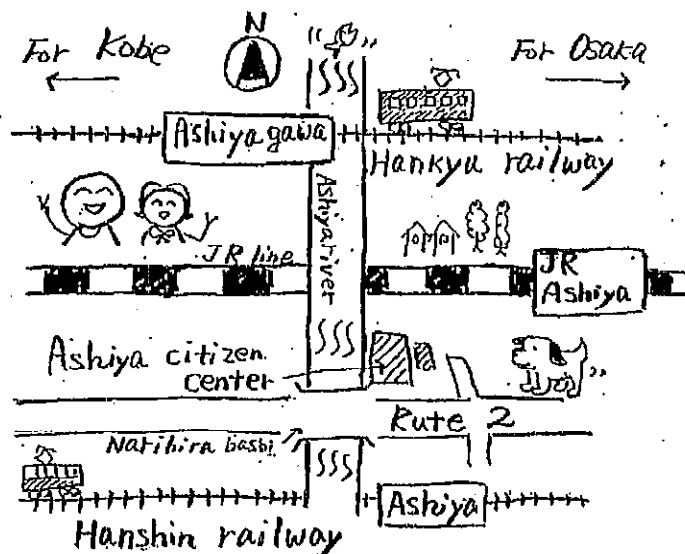 For Kobe
N
For Osaka
Ashiya gawa
Hankyu railway
Ashiya river
JR line
JR
Ashiya
Ashiya citizen
center
Rute 2
Narihira bashi
Ashiya
Hanshin railway